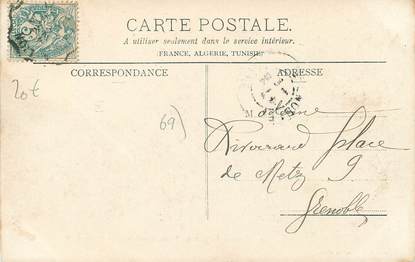 CARTE POSTALE.
A utiliser seulement dans le service intérieur.
(FRANCE, ALGERIE, TUNISIE)
CORRESPONDANCE
ADRESSE
20€
69)
place
de Metz 9
Grenoble